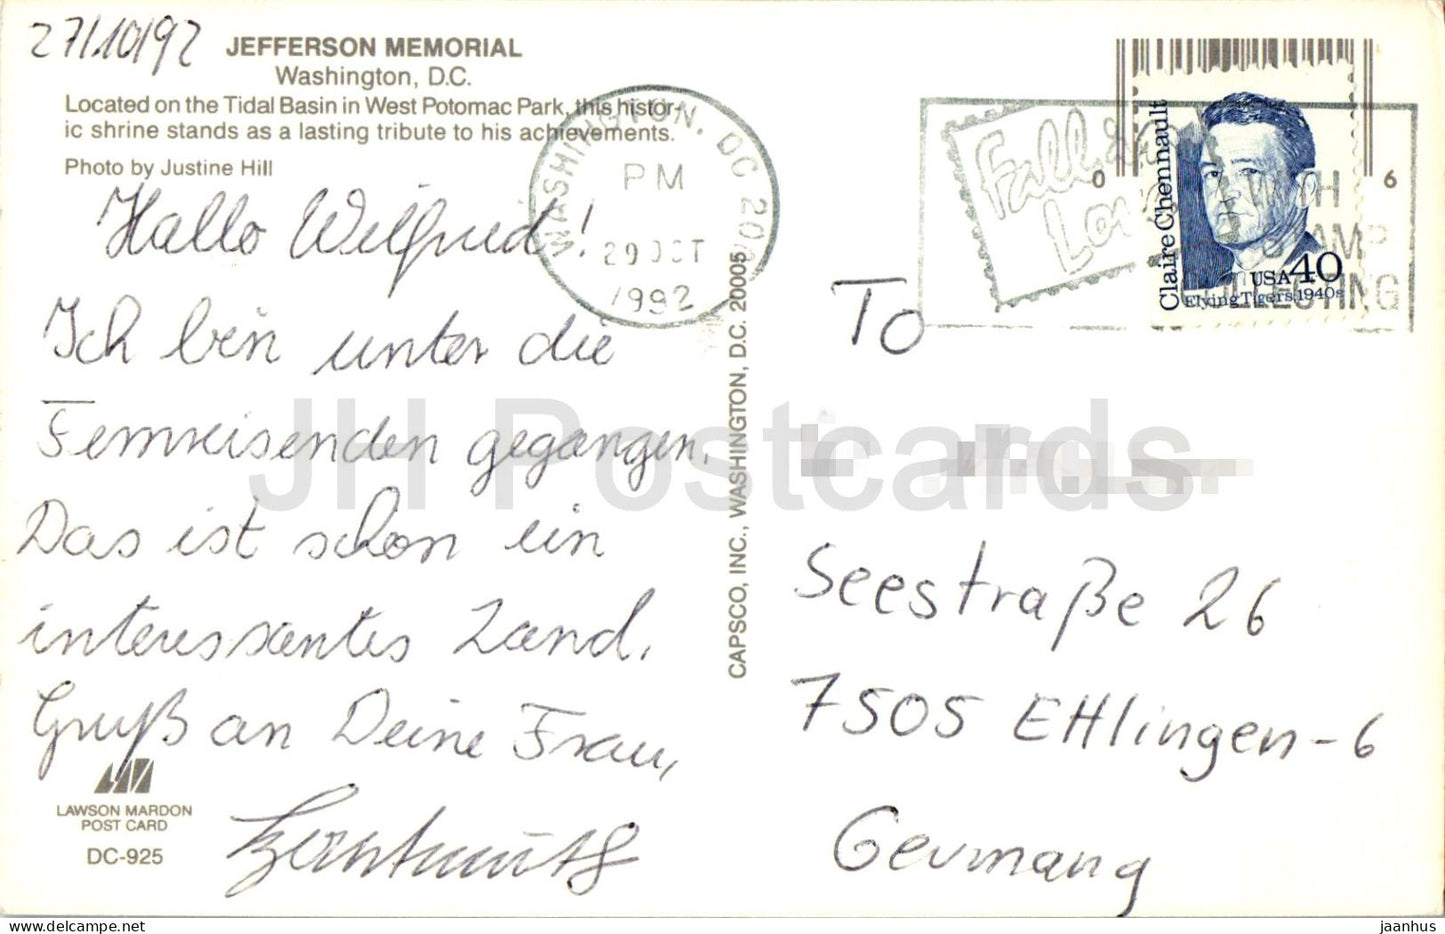 27/10/92
JEFFERSON MEMORIAL
Washington, D.C.
Located on the Tidal Basin in West Potomac Park, this histor-
ic shrine stands as a lasting tribute to his achievements.
Photo by Justine Hill
Hallo Wilfried!
Ich bin unter die
Fernreisenden gegangen.
Das ist schon ein
interessantes Land.
Gruß an Deine Frau,
LAWSON MARDON
POST CARD
DC-925
CAPSCO, INC., WASHINGTON, D.C. 20005
WASHINGTON, DC
PM
29 OCT
1992
Fall
in
WITH
STAMP
COLLECTING
0 6
Claire Chennault
USA 40
Flying Tigers, 1940s
To
Seestraße 26
7505 Ettlingen-6
Germany
JH Postcards
jaanhus